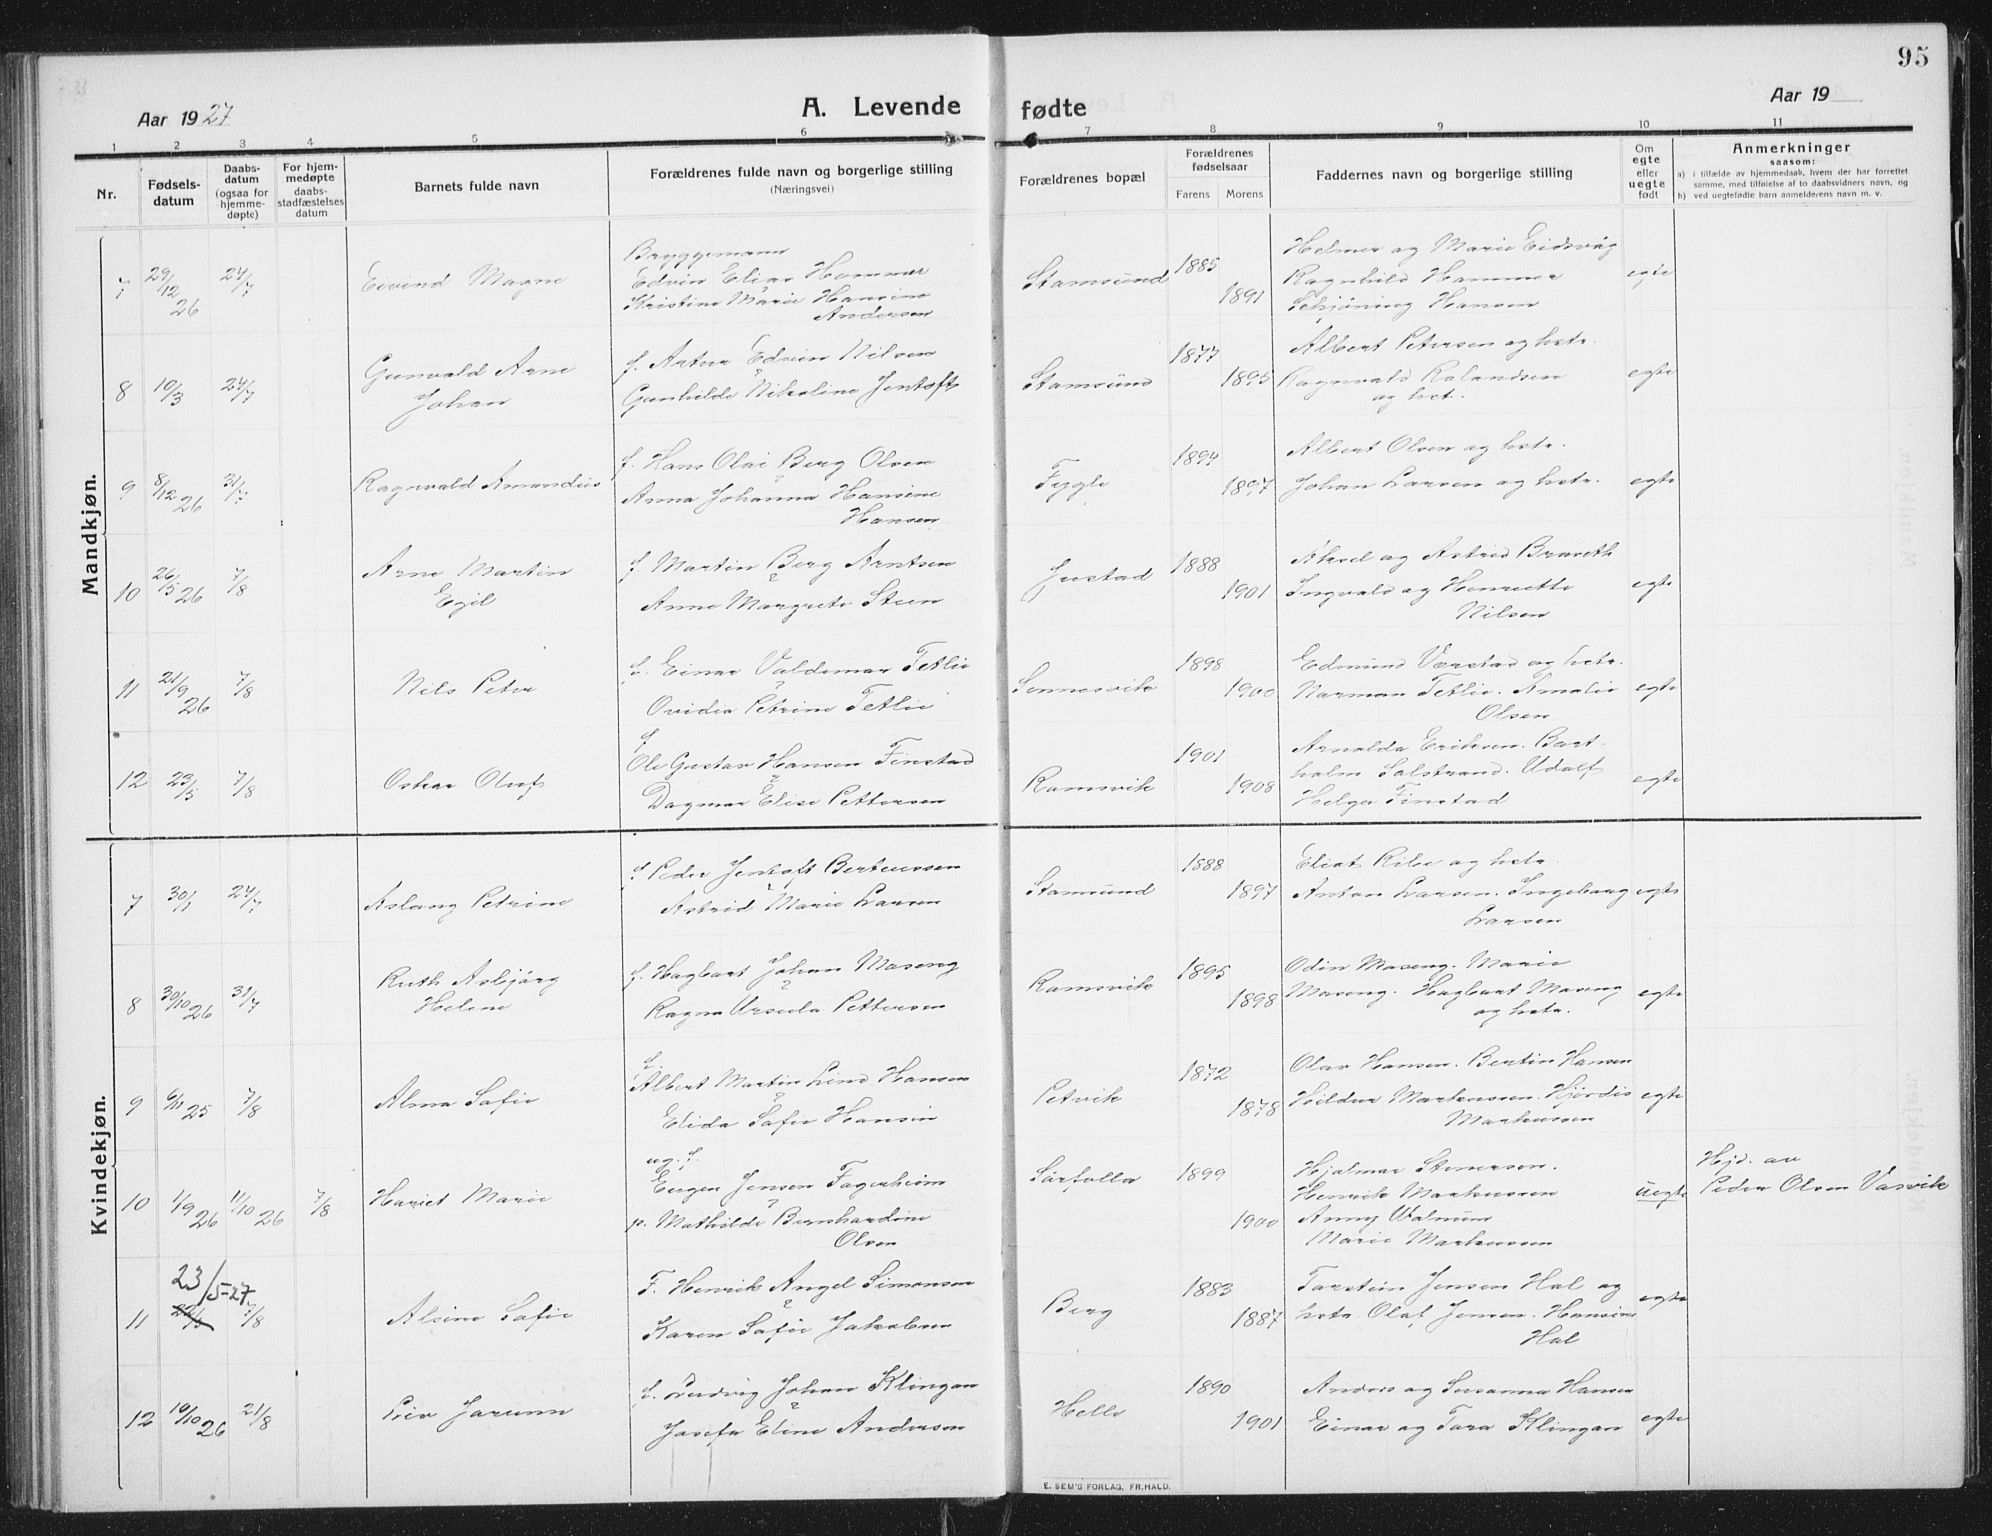 95
Aar 1927
A. Levende fødte
Aar 19
1 2 3 4 5 6 7 8 9 10 11
Nr.
Fødsels-
datum
Daabs-
datum
(ogsaa for
hjemme-
døpte)
For hjem-
medøpte
daabs-
stadfæstelses
datum
Barnets fulde navn
Forældrenes fulde navn og borgerlige stilling
(Næringsvei)
Forældrenes bopæl
Forældrenes
fødselsaar
Farens Morens
Faddernes navn og borgerlige stilling
Om
egte
eller
uegte
født
Anmerkninger
saasom:
a) i tilfælde av hjemmedaab, hvem der har forrettet
samme, med tilføielse af to daabsvidners navn, og
b) ved uegtefødte barn anmelderens navn m. v.
Mandkjøn.
7 29/12 26 24/7 Eivind Magne
Bryggemann
Edvin Elias Hammer
Kristine Marie Hansine
Andersen
Stamsund 1885 1891
Helmer og Marie Eidsvåg
Ragnhild Hammer
Schjöning Hansen
egte
8 10/3 24/7 Gunvald Arne
Johan
f. Artur Edvin Nilsen
Gunhilde Nikoline Jentoft
Stamsund 1877 1895
Albert Petersen og hstr.
Ragnvald Rolandsen
og hst.
egte
9 8/12 26 31/7 Ragnvald Amandus
f. Hans Olai Berg Olsen
Anna Johanna Hansine
Hansen
Fygle 1894 1897
Albert Olsen og hstr.
Johan Larsen og hstr.
egte
10 26/5 26 7/8 Arne Martin
Egil
f. Martin Berg Arntsen
Anne Margrete Steen
Justad 1888 1901
Aksel og Astrid Bruseth
Ingvald og Henriette
Nilsen
egte
11 21/9 26 7/8 Nils Peter
f. Einar Valdemar Tetlie
Ovidia Petrine Tetlie
Sennesvik 1898 1900
Edmund Værstad og hstr.
Norman Tetlie. Amalie
Olsen
egte
12 23/5 7/8 Oskar Oluf
f.
Ole Gustav Hansen Finstad
Dagmar Elise Pettersen
Ramsvik 1901 1908
Arnolda Eriksen. Bart-
holm Solstrand. Udolf
Helga Finstad
egte
Kvindekjøn.
7 30/1 24/7 Aslaug Petrine
f. Peder Jentoft Berteussen
Astrid Marie Larsen
Stamsund 1888 1897
Eliot Ribe og hstr.
Anton Larsen. Ingeborg
Larsen
egte
8 30/10 26 31/7 Ruth Asbjörg
Helene
f. Hagbart Johan Maseng
Ragna Ursula Pettersen
Ramsvik 1895 1898
Odin Maseng. Marie
Maseng. Hagbart Maseng
og hstr.
egte
9 6/11 25 7/8 Alma Sofie
f.
Albert Martin Lind Hansen
Elida Sofie Hansin
Petvik 1872 1878
Olav Hansen. Bertin Hansen
Hildur Markussen. Hjördis
Markussen
egte
10 1/9 26 11/10 26 7/8 Hariet Marie
ug. f.
Eugen Jensen Fagerheim
p. Mathilde Bernhardine
Olsen
Sörfolla 1899 1900
Hjalmar Stenersen.
Henrik Markussen
Anny Walnum
Marie Markussen
uegte
Hjd. av
Peder Olsen Vasvik
11 23/5-27 7/8 Alsine Sofie
F. Henrik Angel Simonsen
Karen Sofie Jakobsen
Berg 1883 1887
Torstein Jensen Hol og
hstr. Olaf Jensen. Hansine
Hol
egte
12 10/10 26 21/8 Jorunn
f. Ludvig Johan Klingan
Josefa Eline Andersen
Helle 1890 1901
Anders og Susanna Hansen
Einar og Tora Klingan
egte
E. SEM'S FORLAG, FR.HALD.